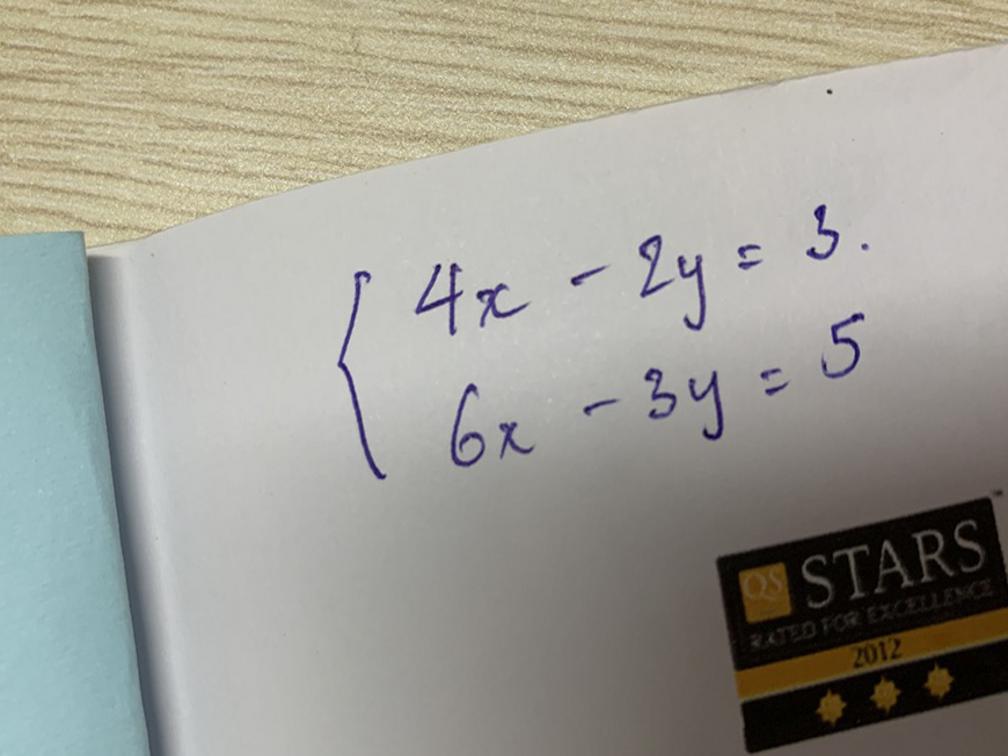 4x - 2y = 3.
6x - 3y = 5
QS STARS™
RATED FOR EXCELLENCE
2012